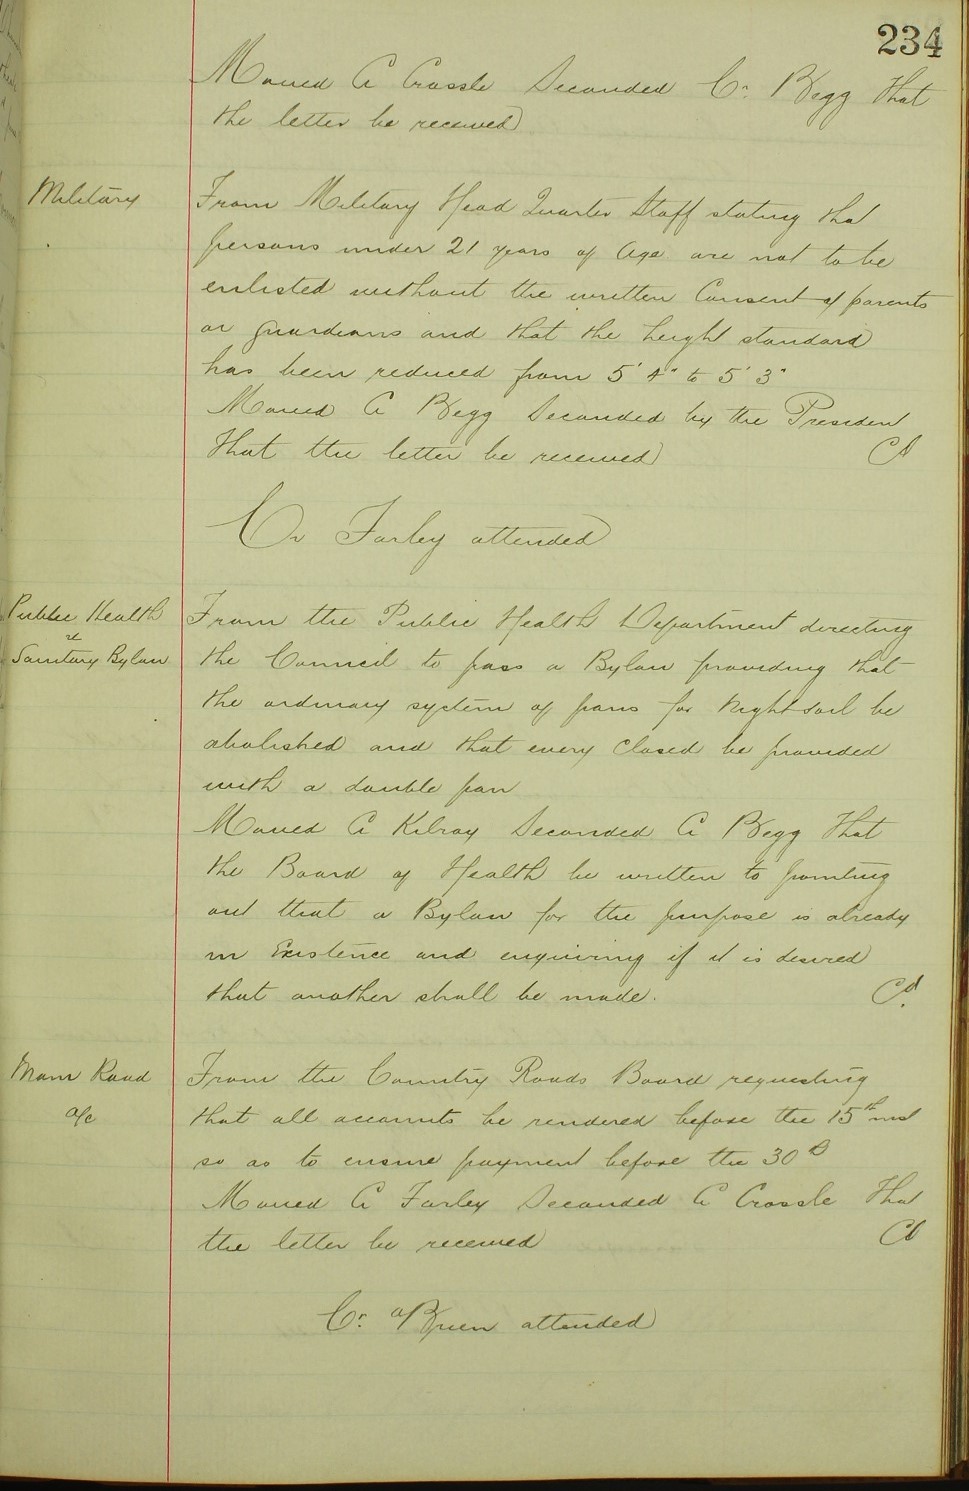 234
Moved Cr Crossle Seconded Cr. Begg That
the letter be received
Military
From Military Head Quarter Staff stating that
persons under 21 years of age are not to be
enlisted without the written Consent of parents
or guardians and that the height standard
has been reduced from 5' 4" to 5' 3"
Moved Cr Begg Seconded by the President
That the letter be received Cd
Cr Farley attended
Public Health
&
Sanitary Bylaw
From the Public Health Department directing
the Council to pass a Bylaw providing that
the ordinary system of pans for Night soil be
abolished and that every Closed be provided
with a double pan
Moved Cr Kilray Seconded Cr Begg That
the Board of Health be written to pointing
out that a Bylaw for the purpose is already
in Existence and enquiring if it is desired
that another shall be made. Cd.
Main Road
a/c
From the Country Roads Board requesting
that all accounts be rendered before the 15th inst
so as to ensure payment before the 30th
Moved Cr Farley Seconded Cr Crossle That
the letter be received Cd
Cr. attended